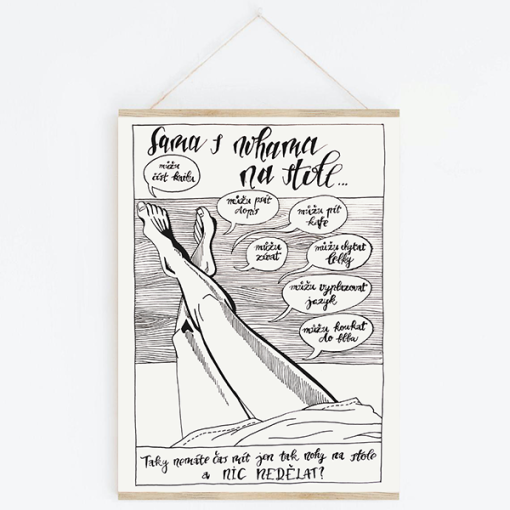 Sama s nohama
na stole...
můžu
číst knihu
můžu psát
dopis
můžu pít
kafe
můžu
zívat
můžu chytat
lelky
můžu vyplazovat
jazyk
můžu koukat
do blba
Taky nemáte čas mít jen tak nohy na stole
a NIC NEDĚLAT?